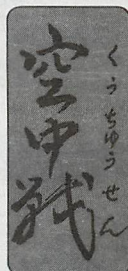 空中戦
くうちゅうせん